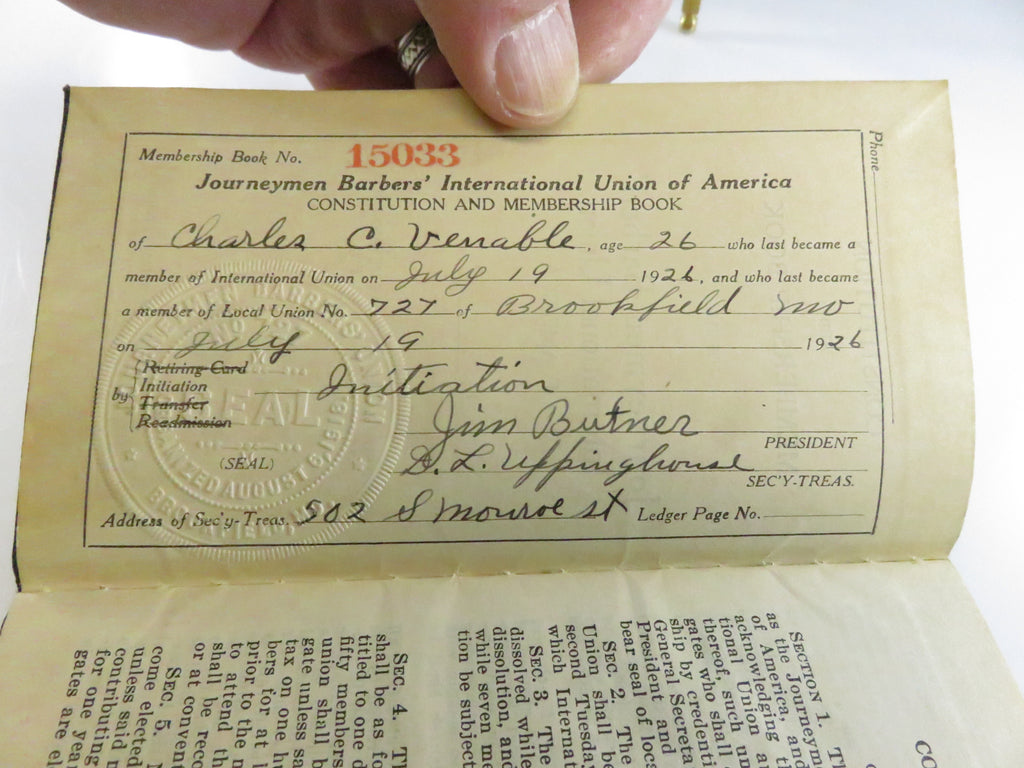 Membership Book No. 15033
Phone
Journeymen Barbers' International Union of America
CONSTITUTION AND MEMBERSHIP BOOK
of Charles C. Venable, age 26 who last became a
member of International Union on July 19 1926, and who last became
a member of Local Union No. 727 of Brookfield Mo
on July 19 1926
by
Retiring Card
Initiation
Transfer
Readmission
Initiation
Jim Butner
PRESIDENT
D. L. Uppinghouse
SEC'Y-TREAS.
(SEAL)
SEAL
ORGANIZED AUGUST 6, 1918
Address of Sec'y-Treas. 502 S Monroe st Ledger Page No.
CO
SECTION 1. T
as the Journeym
of America, and
acknowledging the
tional Union a
thereof, such un
gates who shall
ship by credenti
General Secreta
President and
bear seal of loca
SEC. 2. The
Union shall be
second Tuesday
which Internat
SEC. 3. The
dissolved while
dissolution, and
while seven me
tion be subject
SEC. 4. T
shall be as fo
titled to one d
fifty members
union shall b
gate unless sa
tax on one hu
bers for at l
prior to the
to attend the
shall be reco
or at convent
SEC. 5.
come elected
unless said
contributing
for one year
gates are el